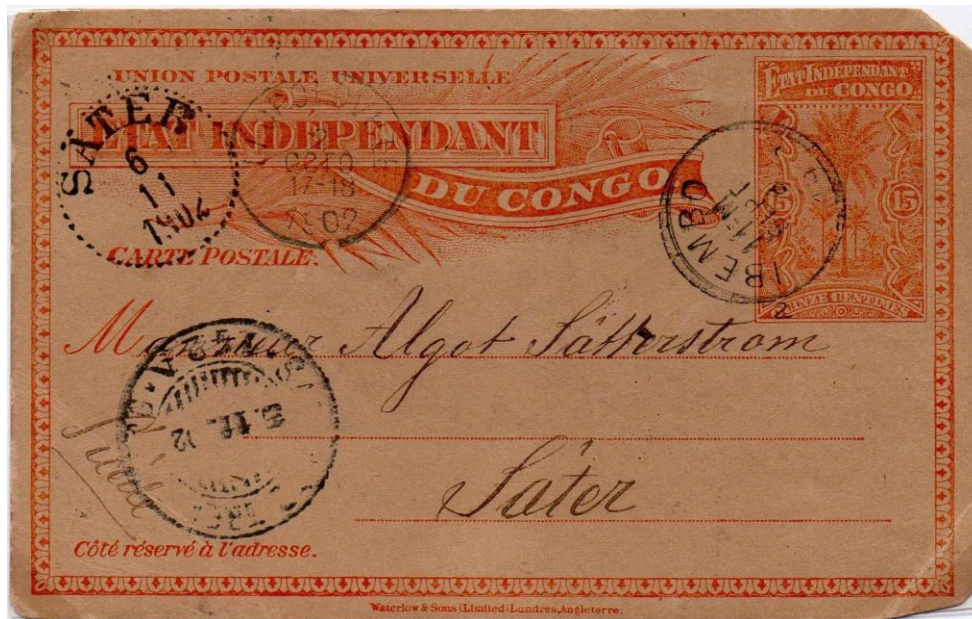 UNION POSTALE UNIVERSELLE
ÉTAT INDÉPENDANT
DU CONGO.
ÉTAT INDÉPENDANT
DU CONGO.
15 15
QUINZE CENTIMES
SATER
6
11
1902
LEOPOLDVILLE
12-18
1902
IBEMBO
CARTE POSTALE.
Monsieur Algot Sätterstrom
Säter
Suède
Côté réservé à l'adresse.
Waterlow & Sons (Limited) Londres, Angleterre.